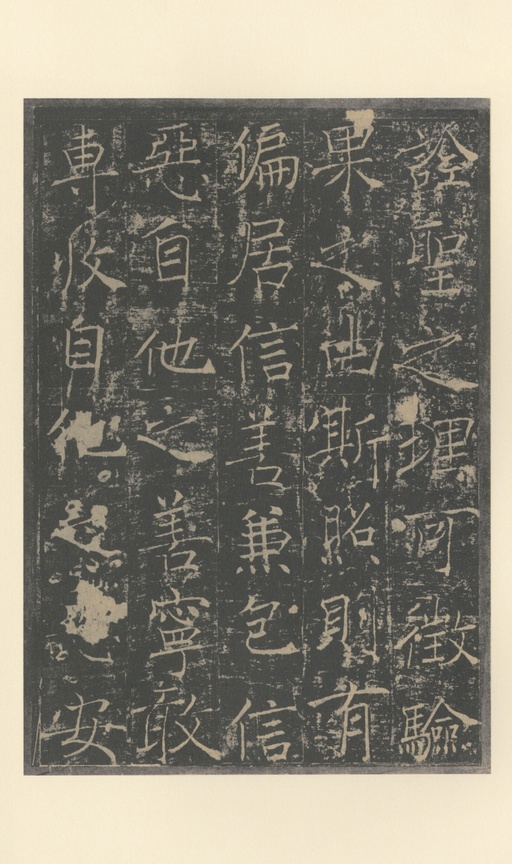 詮聖之理可徵驗
果之由斯照則有
偏居信善兼包信
惡自他之善寧敢
専攻自他之惡安